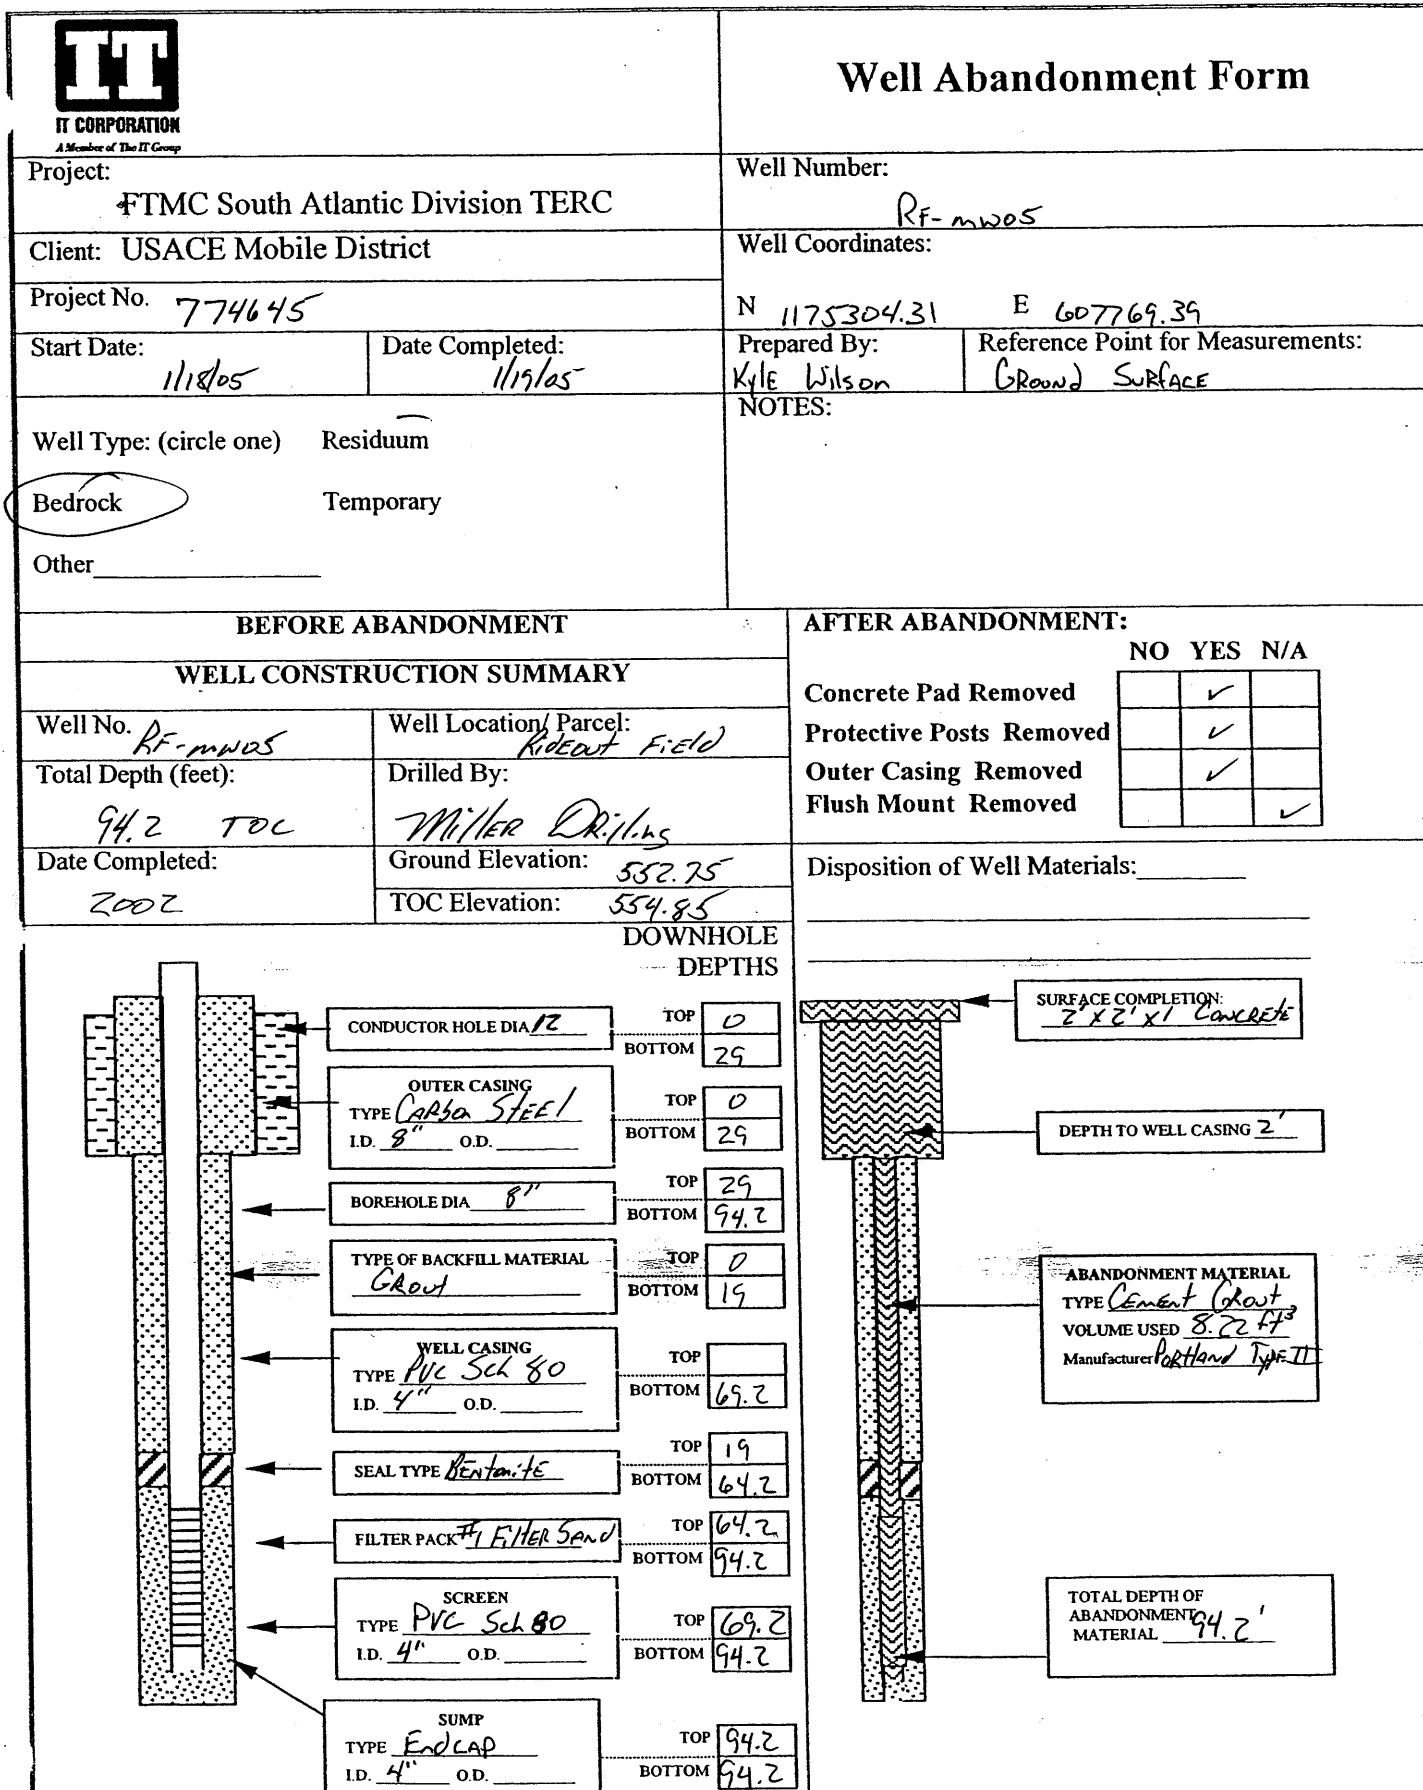 IT
IT CORPORATION
A Member of The IT Group
Well Abandonment Form
Project:
FTMC South Atlantic Division TERC
Well Number:
RF-MW05
Client: USACE Mobile District
Well Coordinates:
Project No. 774645
N 1175304.31 E 607769.39
Start Date:
1/18/05
Date Completed:
1/19/05
Prepared By:
Kyle Wilson
Reference Point for Measurements:
Ground Surface
Well Type: (circle one) Residuum
Bedrock Temporary
Other
NOTES:
BEFORE ABANDONMENT
WELL CONSTRUCTION SUMMARY
Well No. RF-MW05
Well Location/ Parcel:
Rideout Field
Total Depth (feet):
94.2 TOC
Drilled By:
Miller Drilling
Date Completed:
2002
Ground Elevation: 552.75
TOC Elevation: 554.85
AFTER ABANDONMENT:
NO YES N/A
Concrete Pad Removed ✓
Protective Posts Removed ✓
Outer Casing Removed ✓
Flush Mount Removed ✓
Disposition of Well Materials:
DOWNHOLE
DEPTHS
CONDUCTOR HOLE DIA 12
TOP 0
BOTTOM 29
OUTER CASING
TYPE Carbon Steel
I.D. 8" O.D.
TOP 0
BOTTOM 29
BOREHOLE DIA 8"
TOP 29
BOTTOM 94.2
TYPE OF BACKFILL MATERIAL
Grout
TOP 0
BOTTOM 19
WELL CASING
TYPE PVC Sch 80
I.D. 4" O.D.
TOP
BOTTOM 69.2
SEAL TYPE Bentonite
TOP 19
BOTTOM 64.2
FILTER PACK #1 Filter Sand
TOP 64.2
BOTTOM 94.2
SCREEN
TYPE PVC Sch 80
I.D. 4" O.D.
TOP 69.2
BOTTOM 94.2
SUMP
TYPE Endcap
I.D. 4" O.D.
TOP 94.2
BOTTOM 94.2
SURFACE COMPLETION:
2'X2'X1' Concrete
DEPTH TO WELL CASING 2'
ABANDONMENT MATERIAL
TYPE Cement Grout
VOLUME USED 8.22 ft³
Manufacturer Portland Type II
TOTAL DEPTH OF
ABANDONMENT
MATERIAL 94.2'